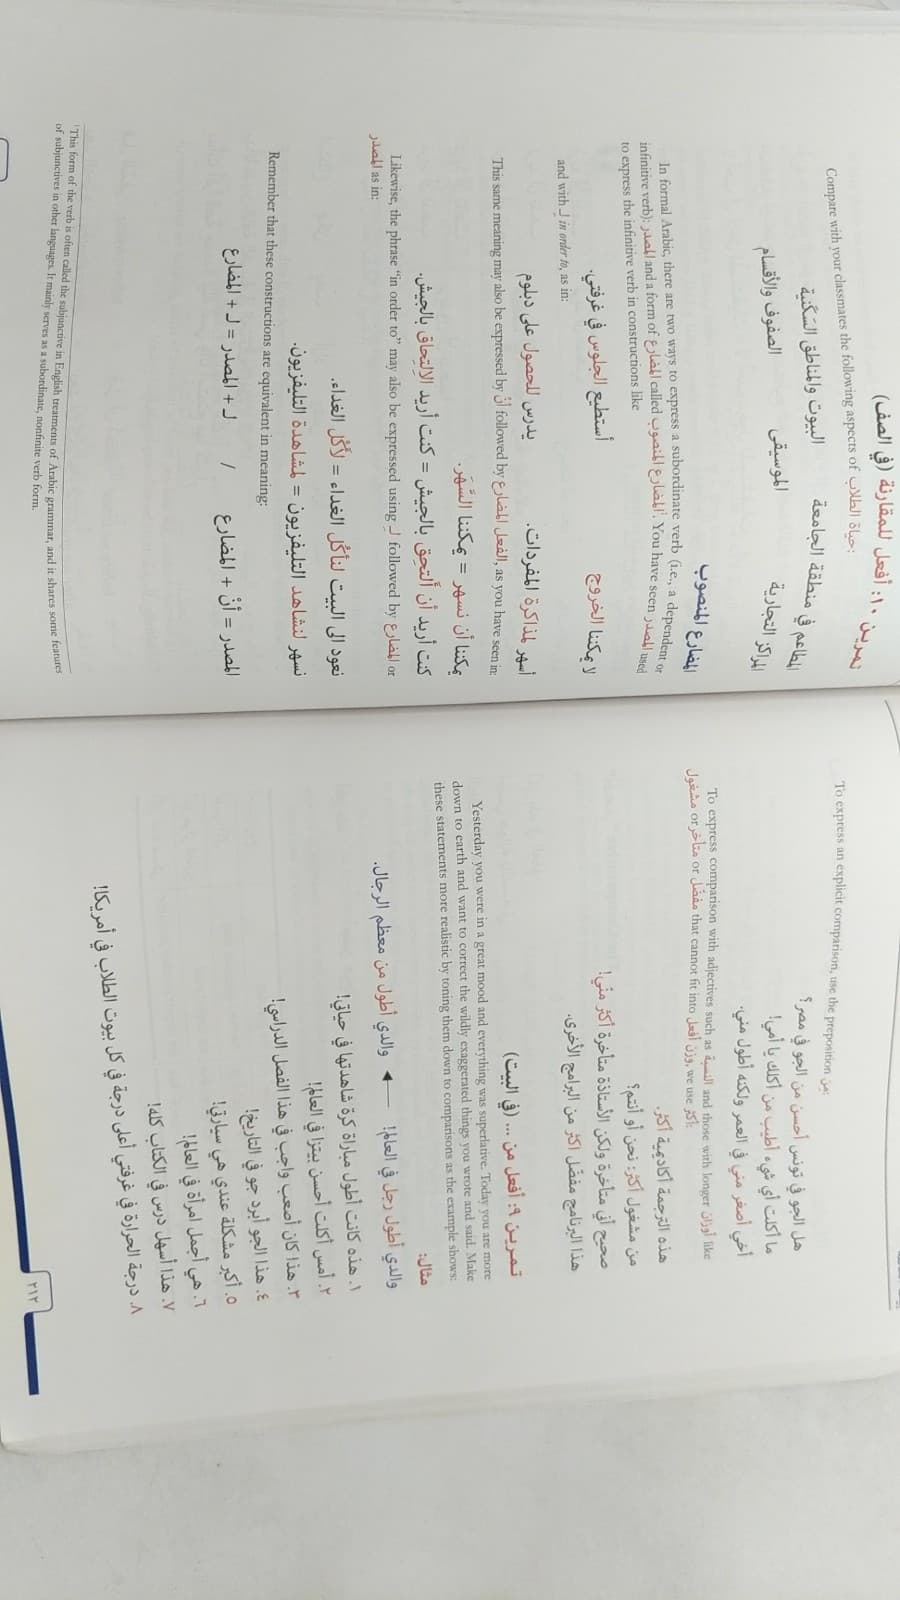 To express an explicit comparison, use the preposition مِن:
هل الجو في تونس أحسن من الجو في مصر؟
ما أكلت أي شيء أطيب من أكلك يا أمي!
أخي أصغر مني في العمر ولكنه أطول مني.
To express comparison with adjectives such as النسبة and those with longer أوزان like
مشغول or متأخر or مفضّل that cannot fit into وزن أفعل, we use أكثَر:
هذه الترجمة أكاديمية أكثَر.
من مشغول أكثَر: نحن أو أنتم؟
صحيح أني متأخرة ولكن الأستاذة متأخرة أكثر منّي!
هذا البرنامج مفضّل أكثر من البرامج الأخرى.
تمرين ٩: أفعل من ... (في البيت)
Yesterday you were in a great mood and everything was superlative. Today you are more
down to earth and want to correct the wildly exaggerated things you wrote and said. Make
these statements more realistic by toning them down to comparisons as the example shows:
مثال:
والدي أطول رجل في العالم! ← والدي أطول من معظم الرجال.
١. هذه كانت أطول مباراة كرة شاهدتها في حياتي!
٢. أمس أكلت أحسن بيتزا في العالم!
٣. هذا كان أصعب واجب في هذا الفصل الدراسي!
٤. هذا الجو أبرد جو في التاريخ!
٥. أكبر مشكلة عندي هي سيارتي!
٦. هي أجمل امرأة في العالم!
٧. هذا أسهل درس في الكتاب كله!
٨. درجة الحرارة في غرفتي أعلى درجة في كل بيوت الطلاب في أمريكا!
٢١٢
تمرين ١٠: أفعل للمقارنة (في الصف)
Compare with your classmates the following aspects of حياة الطلاب:
المطاعم في منطقة الجامعة البيوت والمناطق السَكَنية
المراكز التجارية الموسيقى الصفوف والأقسام
المضارع المنصوب
In formal Arabic, there are two ways to express a subordinate verb (i.e., a dependent or
infinitive verb): المصدر and a form of المضارع called المضارع المنصوب¹. You have seen المصدر used
to express the infinitive verb in constructions like
لا يمكننا الخروج أستطيع الجلوس في غرفتي.
and with لِـ in order to, as in:
أسهر لمذاكرة المفردات. يدرس للحصول على دبلوم
This same meaning may also be expressed by أنْ followed by الفعل المضارع, as you have seen in:
يمكننا أن نسهر = يمكننا السَّهَر.
كنت أريد أن ألتحِق بالجيش = كنت أريد الالتِحاق بالجيش.
Likewise, the phrase "in order to" may also be expressed using لِـ followed by المضارع or
المصدر as in:
نعود الى البيت لنأكُل الغداء = لأكْل الغداء.
نسهر لنشاهد التليفزيون = لمشاهدة التليفزيون.
Remember that these constructions are equivalent in meaning:
المصدر = أنْ + المضارع / لـ + المصدر = لـ + المضارع
¹This form of the verb is often called the subjunctive in English treatments of Arabic grammar, and it shares some features
of subjunctives in other languages. It mainly serves as a subordinate, nonfinite verb form.